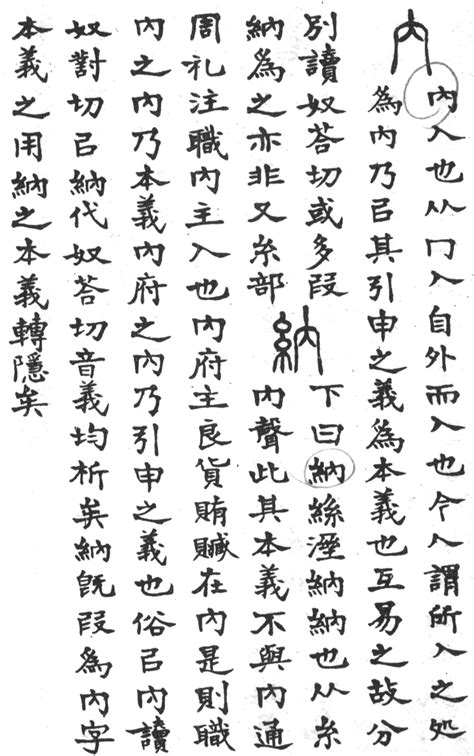 內
內入也从冂入自外而入也今人謂所入之処
為內乃㠯其引申之義為本義也互易之故分
別讀奴荅切或多叚
納為之亦非又糸部
納
下曰納絲溼納納也从糸
內聲此其本義不與內通
周礼注職內主入也內府主良貨賄贓在內是則職
內之內乃本義內府之內乃引申之義也俗㠯內讀
奴對切㠯納代奴荅切音義均析矣納旣叚為內字
本義之用納之本義轉隱矣